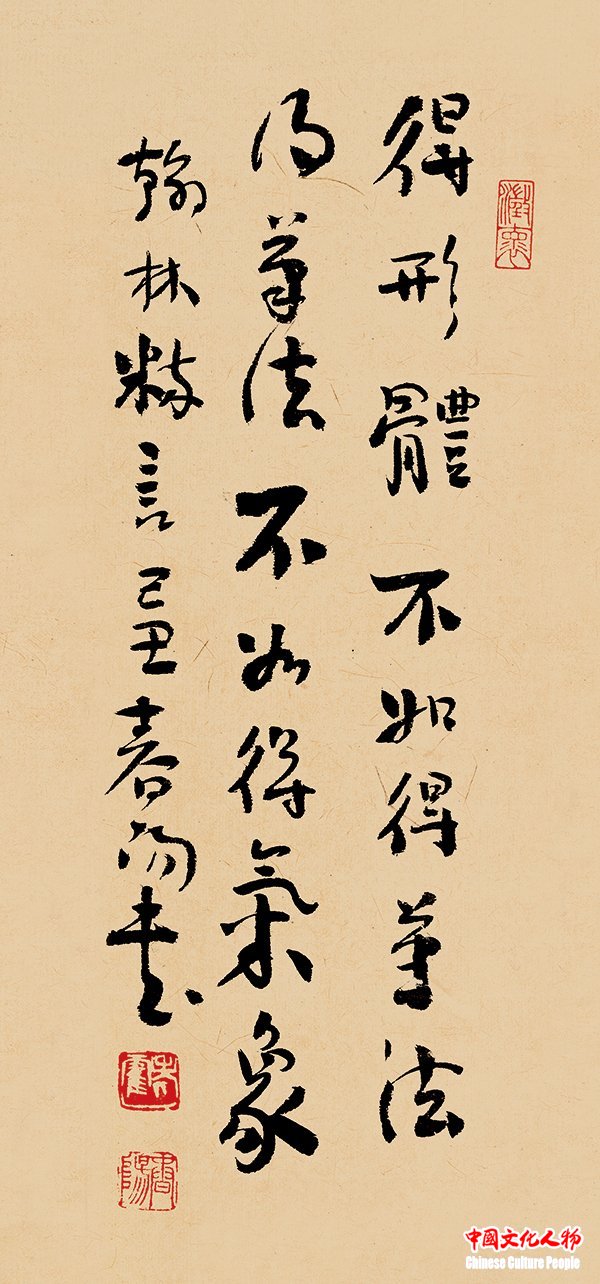 得形體不如得筆法
得筆法不如得氣象
翰林粹言己丑春陽書
中國文化人物
Chinese Culture People